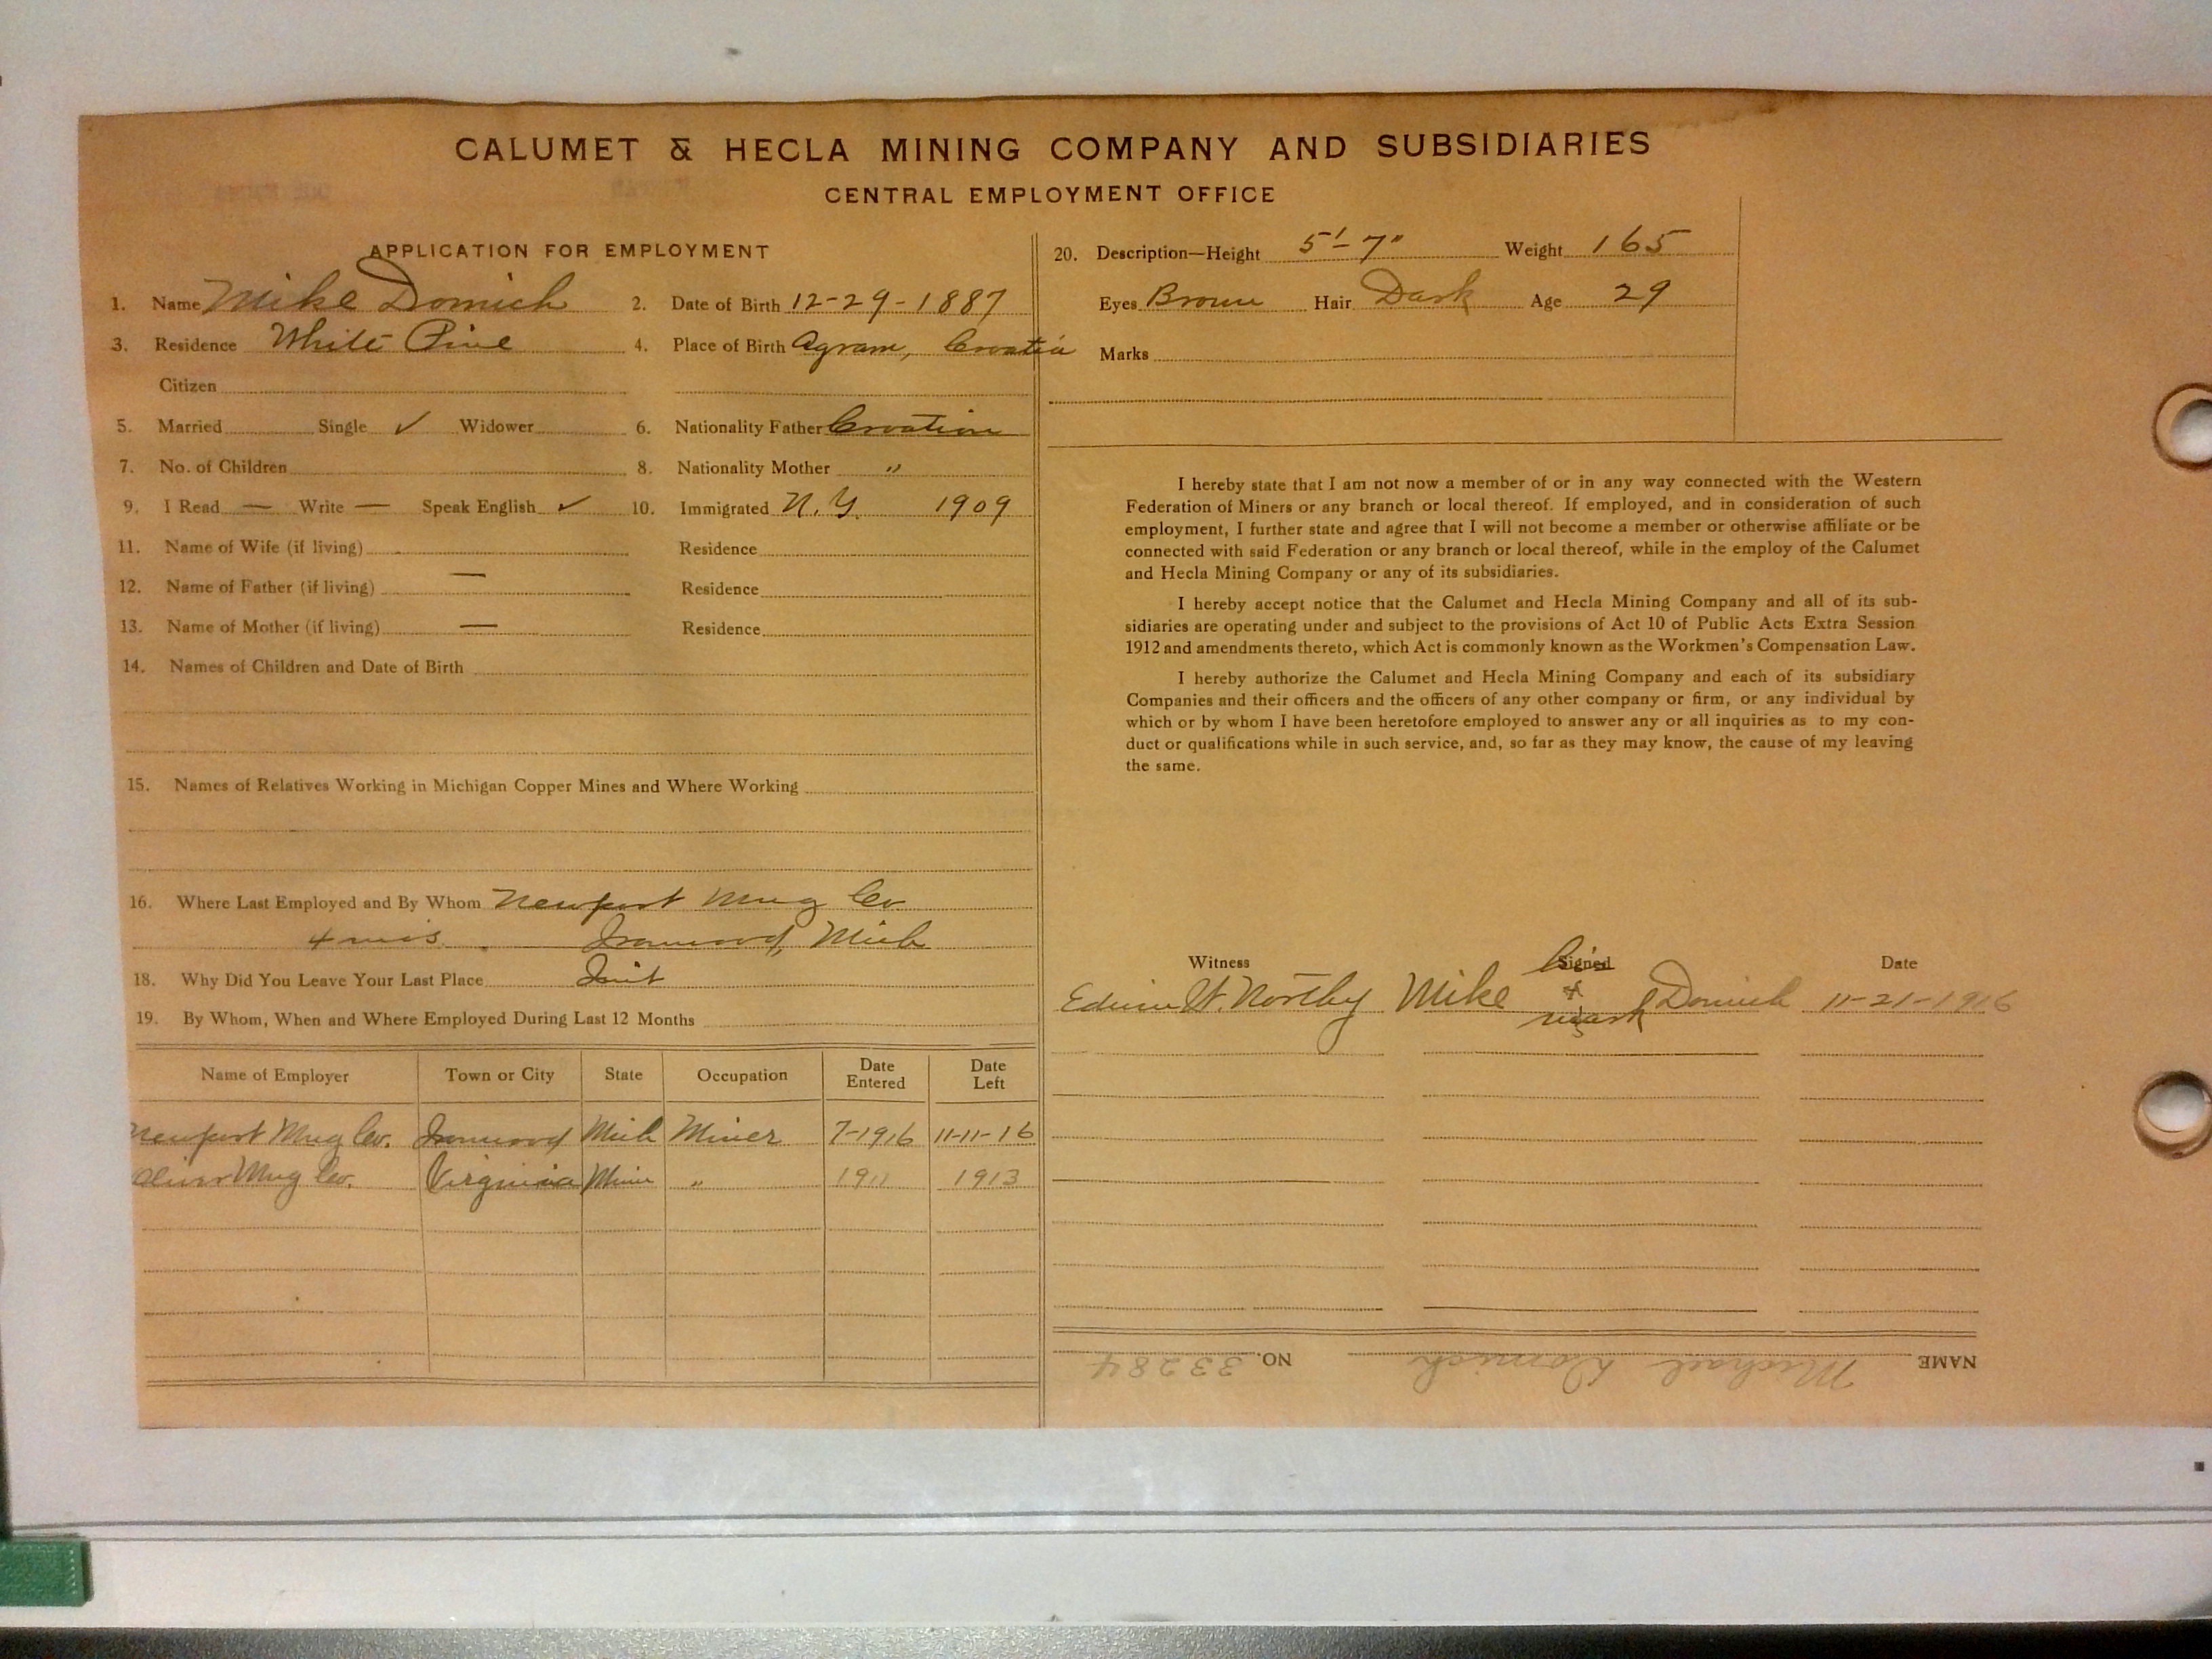 CALUMET & HECLA MINING COMPANY AND SUBSIDIARIES
CENTRAL EMPLOYMENT OFFICE
APPLICATION FOR EMPLOYMENT
1. Name Mike Domich 2. Date of Birth 12-29-1887
3. Residence White Pine 4. Place of Birth Agram, Croatia
Citizen
5. Married Single ✓ Widower 6. Nationality Father Croation
7. No. of Children 8. Nationality Mother "
9. I Read — Write — Speak English ✓ 10. Immigrated N.Y. 1909
11. Name of Wife (if living) Residence
12. Name of Father (if living) — Residence
13. Name of Mother (if living) — Residence
14. Names of Children and Date of Birth
15. Names of Relatives Working in Michigan Copper Mines and Where Working
16. Where Last Employed and By Whom Newport Mng Co
4 mos. Ironwood, Mich
18. Why Did You Leave Your Last Place Quit
19. By Whom, When and Where Employed During Last 12 Months
Name of Employer Town or City State Occupation Date Entered Date Left
Newport Mng Co. Ironwood Mich Miner 7-1916 11-11-16
Oliver Mng Co. Virginia Minn " 1911 1913
20. Description—Height 5'-7" Weight 165
Eyes Brown Hair Dark Age 29
Marks
I hereby state that I am not now a member of or in any way connected with the Western
Federation of Miners or any branch or local thereof. If employed, and in consideration of such
employment, I further state and agree that I will not become a member or otherwise affiliate or be
connected with said Federation or any branch or local thereof, while in the employ of the Calumet
and Hecla Mining Company or any of its subsidiaries.
I hereby accept notice that the Calumet and Hecla Mining Company and all of its sub-
sidiaries are operating under and subject to the provisions of Act 10 of Public Acts Extra Session
1912 and amendments thereto, which Act is commonly known as the Workmen's Compensation Law.
I hereby authorize the Calumet and Hecla Mining Company and each of its subsidiary
Companies and their officers and the officers of any other company or firm, or any individual by
which or by whom I have been heretofore employed to answer any or all inquiries as to my con-
duct or qualifications while in such service, and, so far as they may know, the cause of my leaving
the same.
Witness Signed Date
his
Edwin W. Northy Mike x Domich 11-21-1916
mark
NAME Michael Domich NO. 33284